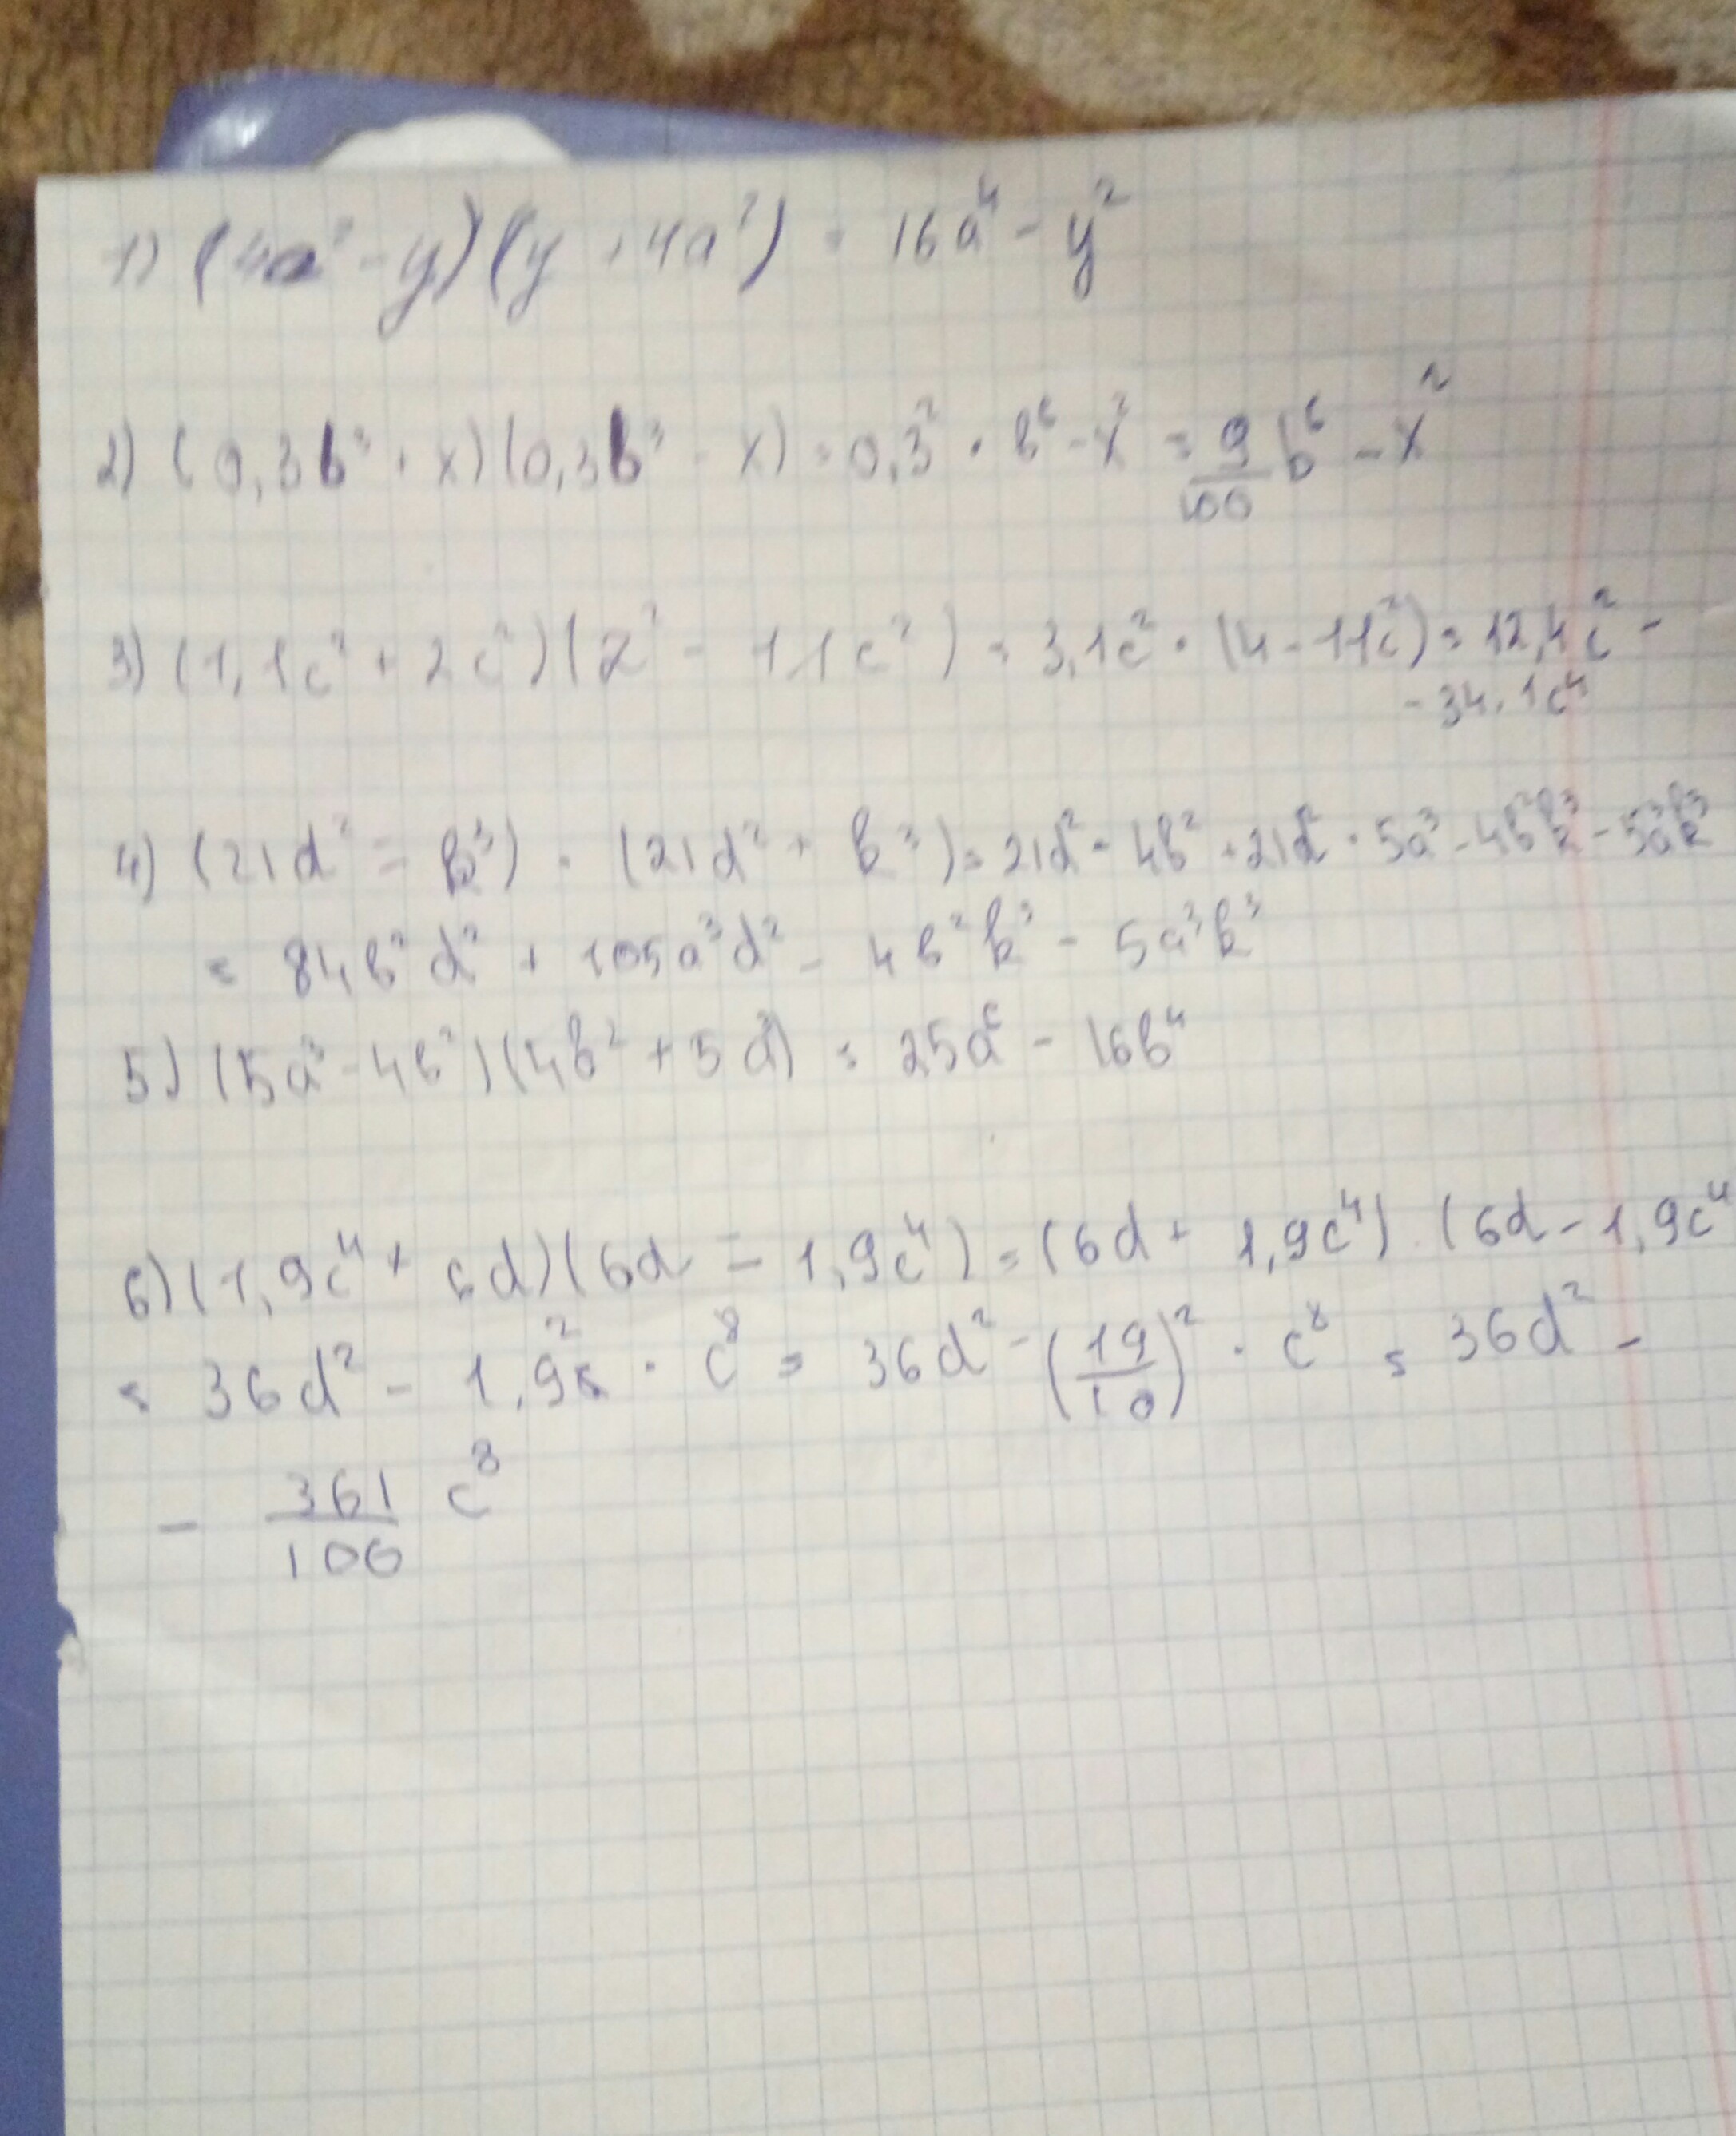 1) (4a² - y)(y + 4a²) = 16a⁴ - y²
2) (0,3b³ + x)(0,3b³ - x) = 0,3² · b⁶ - x² = 9/100 b⁶ - x²
3) (1,1c² + 2c²)(2² - 11c²) = 3,1c² · (4 - 11c²) = 12,4c² -
- 34,1c⁴
4) (21d² - k³) · (21d² + k³) = 21d² · 4b² + 21d² · 5a³ - 4b²k³ - 5a³k³
= 84b²d² + 105a³d² - 4b²k³ - 5a³k³
5) (5a³ - 4b²)(4b² + 5a³) = 25a⁶ - 16b⁴
6) (1,9c⁴ + 6d)(6d - 1,9c⁴) = (6d + 1,9c⁴) · (6d - 1,9c⁴
= 36d² - 1,9² · c⁸ = 36d² - (19/10)² · c⁸ = 36d² -
- 361/100 c⁸